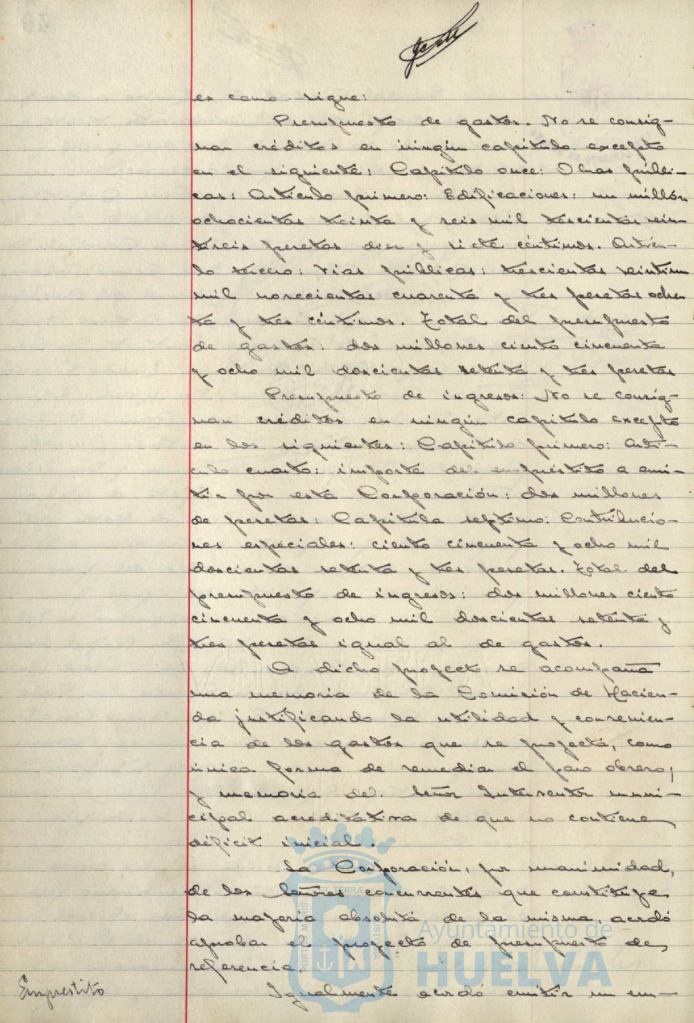 es como sigue:
Presupuesto de gastos. No se consig-
nan créditos en ningún capítulo excepto
en el siguiente: Capítulo once: Obras públi-
cas: Artículo primero: Edificaciones: un millón
ochocientas treinta y seis mil trescientas vein-
tiseis pesetas diez y siete céntimos. Artícu-
lo tercero: Vías públicas: trescientas veintiun
mil novecientas cuarenta y tres pesetas ochen-
ta y tres céntimos. Total del presupuesto
de gastos: dos millones ciento cincuenta
y ocho mil doscientas setenta y tres pesetas
Presupuesto de ingresos: No se consig-
nan créditos en ningún capítulo excepto
en los siguientes: Capítulo primero: Artí-
culo cuarto: importe del empréstito a emi-
tir por esta Corporación: dos millones
de pesetas: Capítulo septimo: Contribucio-
nes especiales: ciento cincuenta y ocho mil
doscientas setenta y tres pesetas. Total del
presupuesto de ingresos: dos millones ciento
cincuenta y ocho mil doscientas setenta y
tres pesetas igual al de gastos.
A dicho proyecto se acompaña
una memoria de la Comisión de Hacien-
da justificando la utilidad y convenien-
cia de los gastos que se proyecta, como
única forma de remediar el paro obrero;
y memoria del Señor Interventor muni-
cipal acreditativa de que no contiene
déficit inicial.
La Corporación, por unanimidad,
de los Señores concurrentes que constituye
la mayoría absoluta de la misma, acordó
aprobar el proyecto de presupuesto de
referencia.
Empréstito
Igualmente acordó emitir un em-
Ayuntamiento de
HUELVA